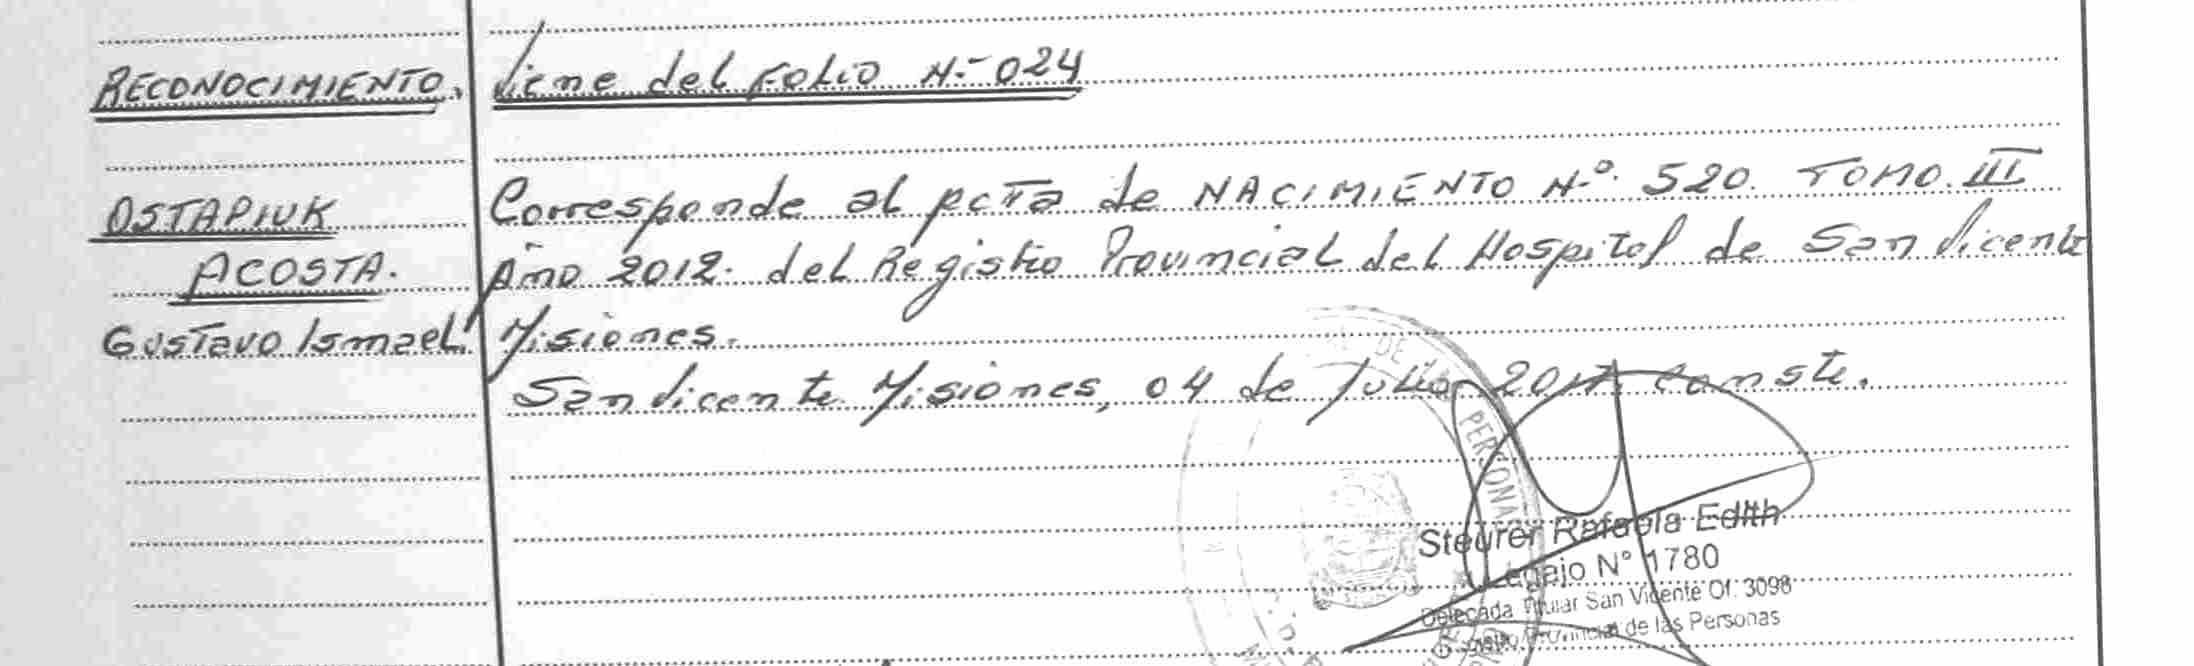 RECONOCIMIENTO. Viene del FOLIO N.- 024
OSTAPIUK Corresponde al Acta de NACIMIENTO N.º 520. TOMO. III
ACOSTA. Año 2012. del Registro Provincial del Hospital de San Vicente
Gustavo Ismael. Misiones.
San Vicente Misiones, 04 de Julio 2017. Conste.
DE LAS PERSONAS
Steurer Rafaela Edith
Legajo N° 1780
Delegada Titular San Vicente Of. 3098
Registro Provincial de las Personas